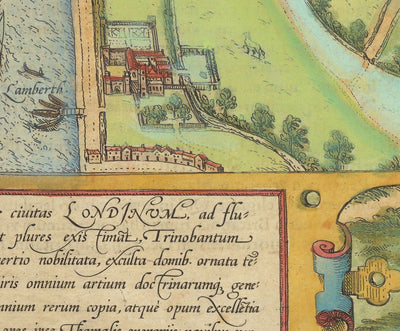 Lamberth
ciuitas LONDINVM, ad flu-
t plures exis timāt, Trinobantum
ertio nobilitata, exculta domib. ornata tē
iris omnium artium doctrinarumq, gene
nium rerum copia, atque opum excellētia